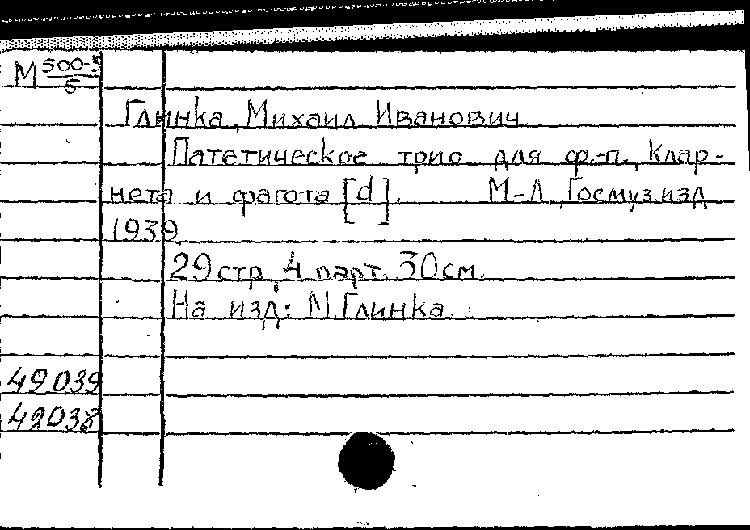 М 500-3/5
Глинка, Михаил Иванович
Патетическое трио для ф.-п., клар-
нета и фагота [d]. М-Л, Госмузизд
1939
29 стр, 4 парт. 30 см.
На изд: М. Глинка.
49039
42038